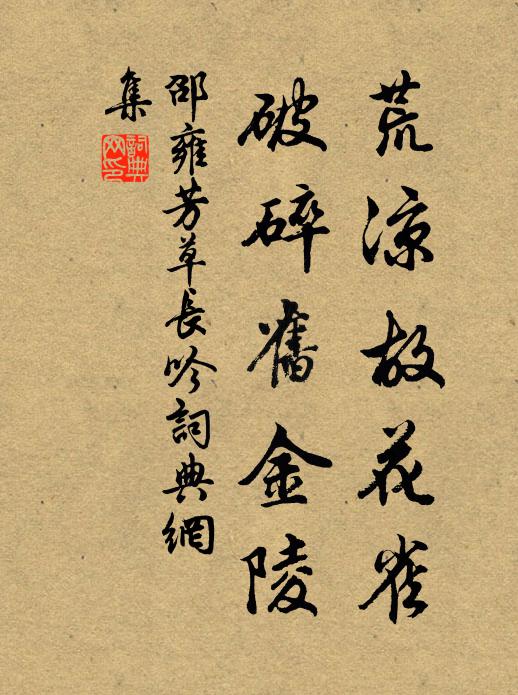 荒涼故花雀
破碎舊金陵
邵雍芳草長吟詞典網
集
詞典網印